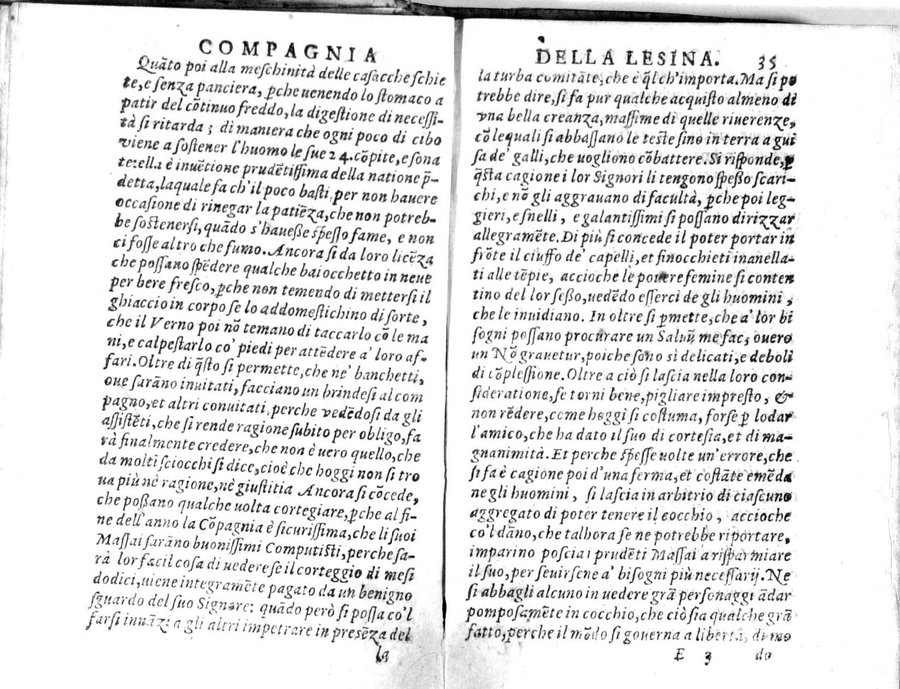 COMPAGNIA
Quãto poi alla meschinità delle casacche schie
te, e senza panciera, pche uenendo lo stomaco a
patir del cõtinuo freddo, la digestione di necessi-
tà si ritarda; di maniera che ogni poco di cibo
viene a sostener l'huomo le sue 24. cõpite, e sona
te: ella è inuẽtione prudẽtissima della natione p̃-
detta, laquale fa ch'il poco basti, per non hauere
occasione di rinegar la patiẽza, che non potreb-
be sostenersi, quãdo s'hauesse spesso fame, e non
ci fosse altro che fumo. Ancora si da loro licẽza
che possano spẽdere qualche baiocchetto in neue
per bere fresco, pche non temendo di mettersi il
ghiaccio in corpo se lo addomestichino di sorte,
che il Verno poi nõ temano di taccarlo cõ le ma
ni, e calpestarlo co' piedi per attẽdere a' loro af-
fari. Oltre di q̃sto si permette, che ne' banchetti,
oue sarãno inuitati, facciano un brindesi al com
pagno, et altri conuitati, perche vedẽdosi da gli
assistẽti, che si rende ragione subito per obligo, fa
rà finalmente credere, che non è uero quello, che
da molti sciocchi si dice, cioè che hoggi non si tro
ua più nè ragione, nè giustitia Ancora si cõcede,
che possano qualche uolta cortegiare, pche al fi-
ne dell'anno la Cõpagnia è sicurissima, che li suoi
Massai sarãno buonissimi Computisti, perche sa-
rà lor facil cosa di uedere se il corteggio di mesi
dodici, uiene integramẽte pagato da un benigno
sguardo del suo Signore: quãdo però si possa co'l
farsi innãz: a gli altri impetrare in presẽza del
la
DELLA LESINA. 35
la turba comitãte, che è q̃l ch'importa. Ma si po
trebbe dire, si fa pur qualche acquisto almeno di
vna bella creanza, massime di quelle riuerenze,
cõ lequali si abbassano le teste sino in terra a gui
sa de' galli, che uogliono cõbattere. Si risponde, p
q̃sta cagione i lor Signori li tengono spesso scari-
chi, e nõ gli aggrauano di facultà, pche poi leg-
gieri, e snelli, e galantissimi si possano dirizzar
allegramẽte. Di più si concede il poter portar in
frõte il ciuffo de' capelli, et finocchieti inanella-
ti alle tẽpie, accioche le pouere femine si conten
tino del lor sesso, uedẽdo esserci de gli huomini,
che le inuidiano. In oltre si pmette, che a' lor bi
sogni possano procurare un Saluũ me fac, ouero
un Nõ grauetur, poiche sono sì delicati, e deboli
di cõplessione. Oltre a ciò si lascia nella loro con-
sideratione, se torni bene, pigliare impresto, &
non rẽdere, come hoggi si costuma, forse p lodar
l'amico, che ha dato il suo di cortesia, et di ma-
gnanimità. Et perche spesse uolte un'errore, che
si fa è cagione poi d'una ferma, et costãte emẽda
ne gli huomini, si lascia in arbitrio di ciascuno
aggregato di poter tenere il cocchio, accioche
co'l dãno, che talhora se ne potrebbe riportare,
imparino poscia i prudẽti Massai a risparmiare
il suo, per seuirsene a' bisogni più necessarij. Ne
si abbagli alcuno in uedere grã personaggi ãdar
pomposamẽte in cocchio, che ciò sia qualche grã
fatto, perche il mõdo si gouerna a libertà, di mo
E 3 do